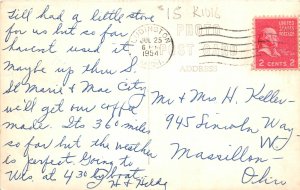 Till had a little stove
for us but so far
havent used it.
Maybe up thru S.
St Marie & Mac City
we'll get our coffee
made. Its 36¢ miles
so far but the weather
is perfect. Going to
Wis at 4:30 by boat
H & Hilda
#15 RIVIG
LUDINGTON
JUL 25
6 PM
1954
MICH.
FROM
ST CARD
ADDRESS
UNITED STATES POSTAGE
2 CENTS 2
Mr & Mrs H. Keller
945 Lincoln Way W
Massillon
Ohio